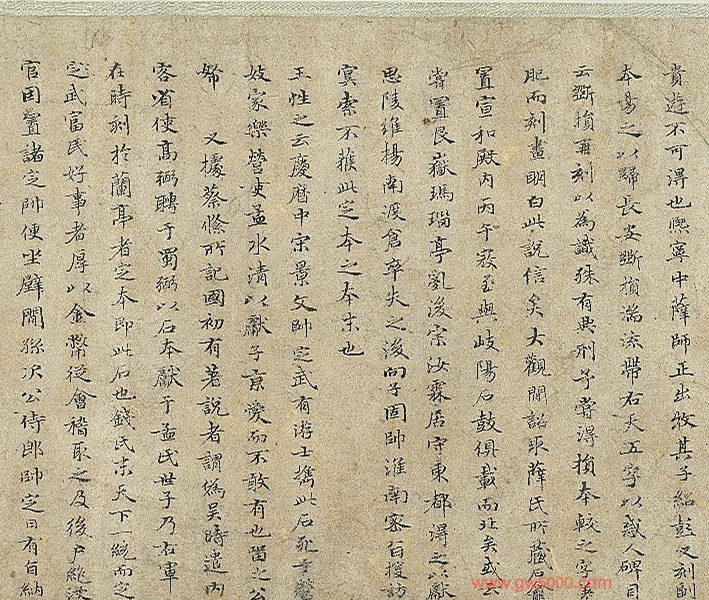 貴遊不可得也熙寧中薛師正出牧其子紹彭又刻副
本易之以歸長安斷損湍流帶右天五字以惑人碑目
云斷損再刻以為識殊有典刑予嘗得損本較之字書
肥而刻畫明白此說信矣大觀間詔取薛氏所藏石龕
置宣和殿內丙午寇至與岐陽石鼓俱載而北矣或云
嘗置艮嶽瑪瑙亭亂後宗汝霖居守東都得之以獻
思陵維揚南渡倉卒失之後向子固帥淮南密旨搜訪
冥索不獲此定本之本末也
王性之云慶曆中宋景文帥定武有游士攜此石死于營
妓家樂營使孟水清以獻子京愛而不敢有也留之公
帑 又據蔡絛所記國初有著說者謂為吳時遣內
客省使高弼聘于蜀弼以石本獻于孟氏世子乃右軍
在時刻於蘭亭者定本即此石也錢氏末天下一統而之
定武富民好事者厚以金幣從會稽取之及後戶絕沒
官因置諸定帥便坐壁間孫次公侍郎帥定日有旨納
www.gsd000.com